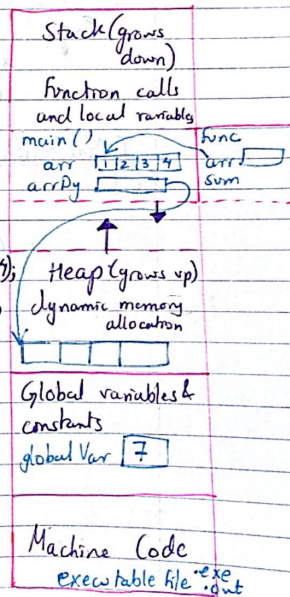 Stack (grows
down)
function calls
and local variables
main()
func
arr 1 2 3 4
arr
arrDy
sum
4);
Heap (grows up)
dynamic memory
allocation
Global variables &
constants
global Var 7
Machine Code
executable file .exe
.out